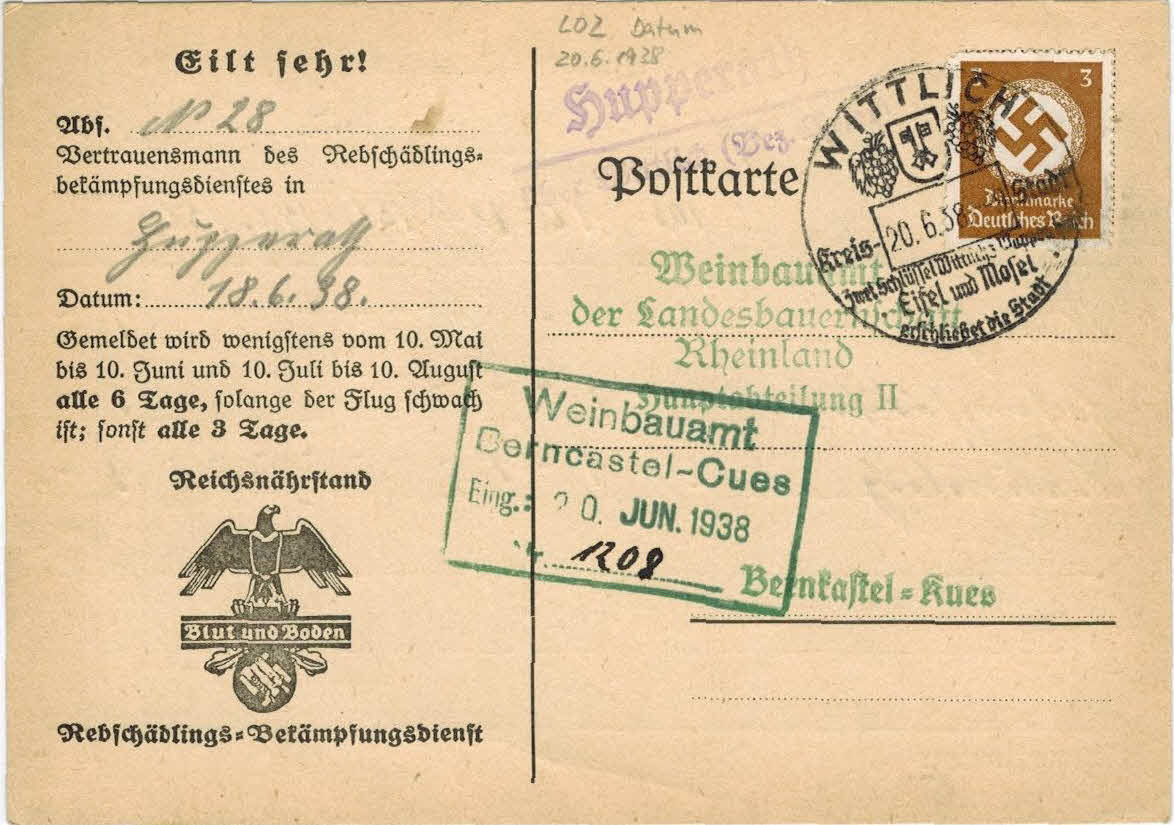 LOZ Datum
20.6.1938
Eilt sehr!
Abs. No 28
Vertrauensmann des Rebschädlings-
bekämpfungsdienstes in
Hupperath
Datum: 18.6.38.
Gemeldet wird wenigstens vom 10. Mai
bis 10. Juni und 10. Juli bis 10. August
alle 6 Tage, solange der Flug schwach
ist; sonst alle 3 Tage.
Reichsnährstand
Blut und Boden
Rebschädlings-Bekämpfungsdienst
Hupperath
(Bez.
Postkarte
WITTLICH
Kreis- Stadt
20.6.38
Zwei Schlüssel Wittlichs Wappen
Eifel und Mosel
erschließet die Stadt
3 3
Dienstmarke
Deutsches Reich
Weinbauamt
der Landesbauernschaft
Rheinland
Hauptabteilung II
Bernkastel-Kues
Weinbauamt
Berncastel-Cues
Eing.: 20. JUN. 1938
Nr. 1208